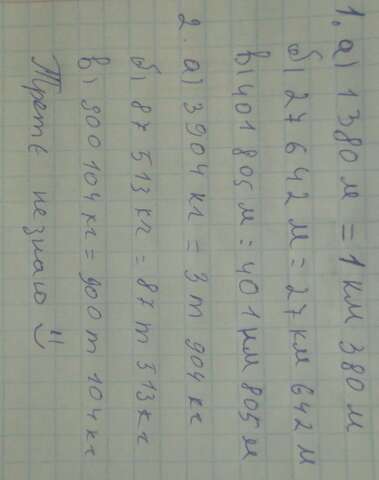 1. а) 1 380 м = 1 км 380 м
б) 27 642 м = 27 км 642 м
в) 401 805 м = 401 км 805 м
2. а) 3 904 кг = 3 т 904 кг
б) 87 513 кг = 87 т 513 кг
в) 900 104 кг = 900 т 104 кг
Трете незнаю